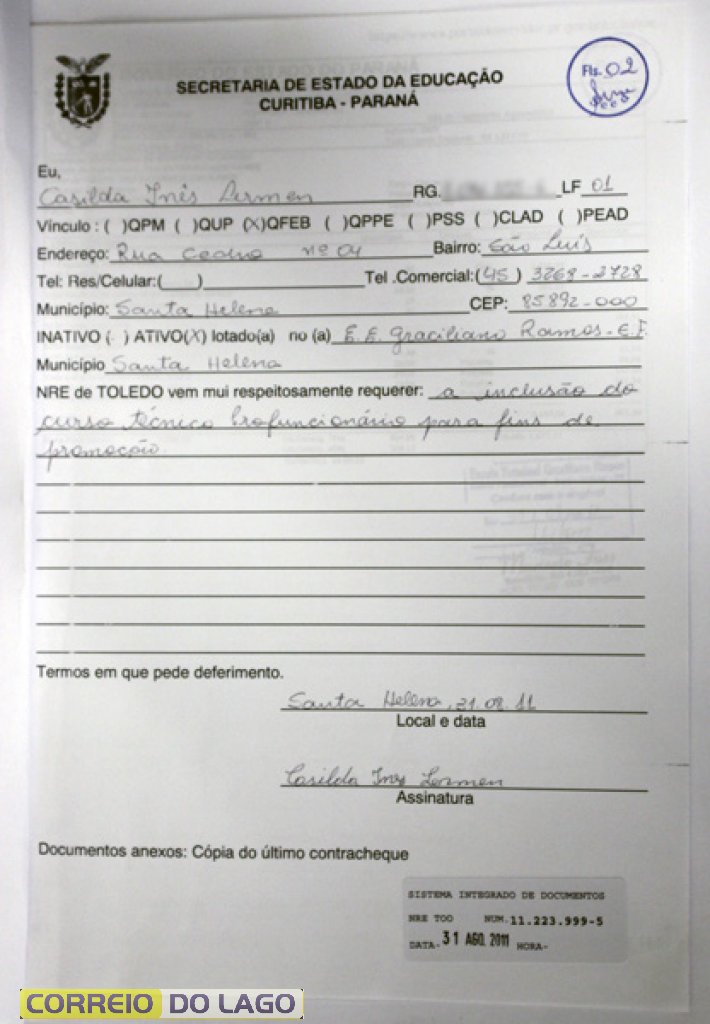 SECRETARIA DE ESTADO DA EDUCAÇÃO
CURITIBA - PARANÁ
Fls. 02
Eu,
Casilda Inês Lermen RG. LF 01
Vínculo : ( )QPM ( )QUP (X)QFEB ( )QPPE ( )PSS ( )CLAD ( )PEAD
Endereço: Rua Cedro nº 04 Bairro: São Luís
Tel: Res/Celular:( ) Tel .Comercial:( 45 ) 3268-2728
Município: Santa Helena CEP: 85892-000
INATIVO ( ) ATIVO(X) lotado(a) no (a) E.E. Graciliano Ramos - E.F.
Município Santa Helena
NRE de TOLEDO vem mui respeitosamente requerer: a inclusão do
curso técnico Profuncionário para fins de
promoção.
Termos em que pede deferimento.
Santa Helena, 31.08.11
Local e data
Casilda Ines Lermen
Assinatura
Documentos anexos: Cópia do último contracheque
SISTEMA INTEGRADO DE DOCUMENTOS
NRE TOO NUM. 11.223.999-5
DATA- 31 AGO. 2011 HORA-
CORREIO DO LAGO